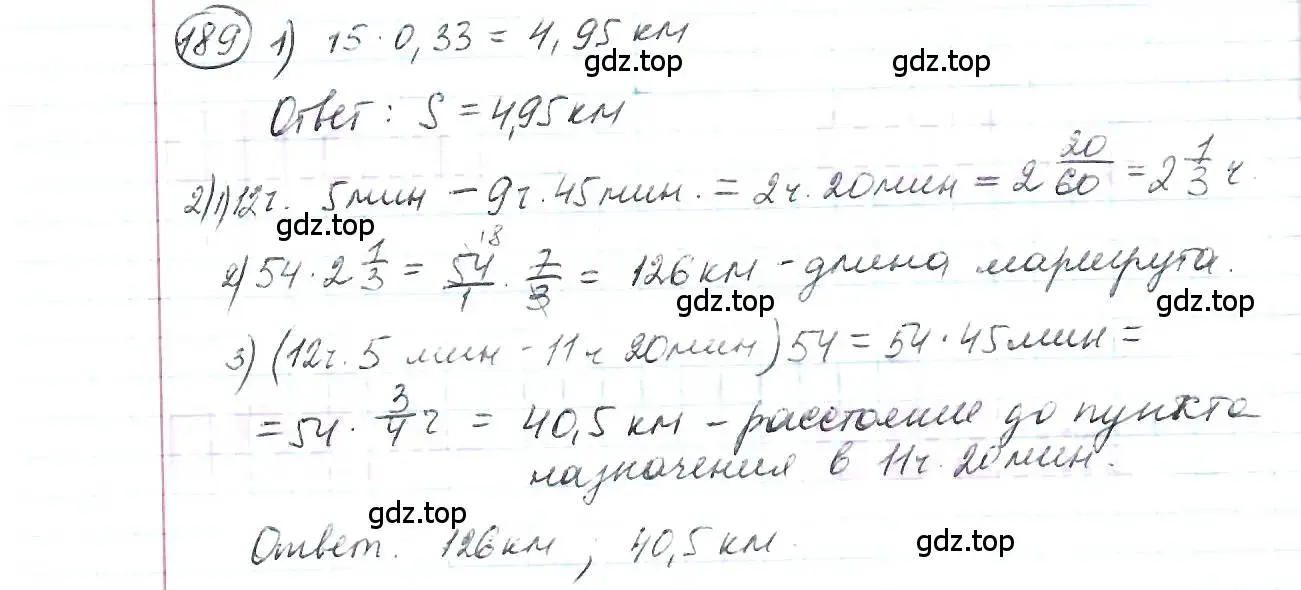 189 1) 15 · 0,33 = 4,95 км
gdz.top gdz.top
Ответ: S = 4,95 км
2) 1) 12ч. 5мин – 9ч. 45мин. = 2ч. 20мин = 2 20/60 = 2 1/3 ч.
gdz.top
2) 54 · 2 1/3 = 54/1 · 7/3 = 126 км – длина маршрута.
18
gdz.top gdz.top
3) (12ч. 5 мин - 11ч 20мин) 54 = 54 · 45мин =
= 54 · 3/4 ч = 40,5 км – расстояние до пункта
назначения в 11ч. 20мин.
gdz.top
Ответ. 126км ; 40,5 км.
gdz.top